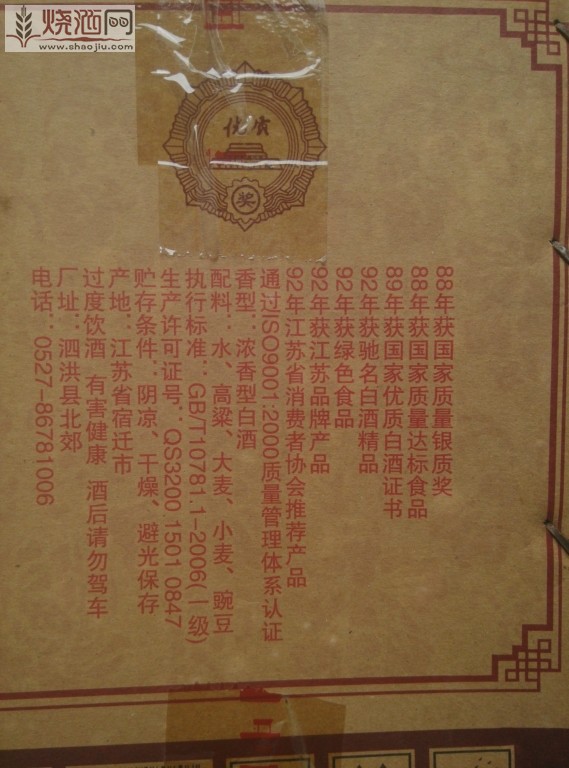 烧酒网
www.shaojiu.com
优质
奖
88年获国家质量银质奖
88年获国家质量达标食品
89年获国家优质白酒证书
92年获驰名白酒精品
92年获绿色食品
92年获江苏品牌产品
92年江苏省消费者协会推荐产品
通过ISO9001:2000质量管理体系认证
香型：浓香型白酒
配料：水、高粱、大麦、小麦、豌豆
执行标准：GB/T10781.1-2006(一级)
生产许可证号：QS3200 1501 0847
贮存条件：阴凉、干燥、避光保存
产地：江苏省宿迁市
过度饮酒 有害健康 酒后请勿驾车
厂址：泗洪县北郊
电话：0527-86781006